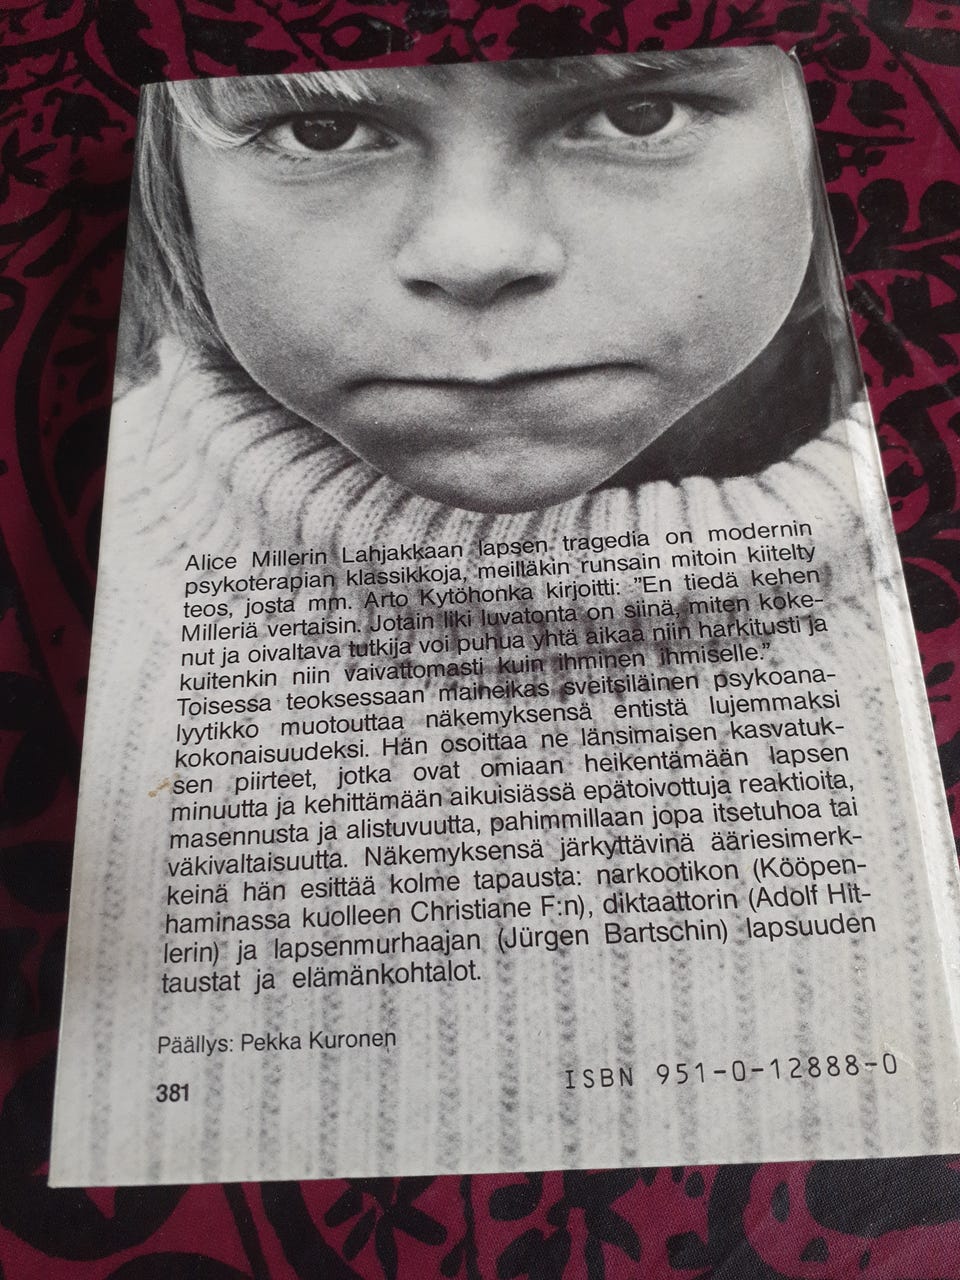 Alice Millerin Lahjakkaan lapsen tragedia on modernin
psykoterapian klassikkoja, meilläkin runsain mitoin kiitelty
teos, josta mm. Arto Kytöhonka kirjoitti: "En tiedä kehen
Milleriä vertaisin. Jotain liki luvatonta on siinä, miten koke-
nut ja oivaltava tutkija voi puhua yhtä aikaa niin harkitusti ja
kuitenkin niin vaivattomasti kuin ihminen ihmiselle."
Toisessa teoksessaan maineikas sveitsiläinen psykoana-
lyytikko muotouttaa näkemyksensä entistä lujemmaksi
kokonaisuudeksi. Hän osoittaa ne länsimaisen kasvatuk-
sen piirteet, jotka ovat omiaan heikentämään lapsen
minuutta ja kehittämään aikuisiässä epätoivottuja reaktioita,
masennusta ja alistuvuutta, pahimmillaan jopa itsetuhoa tai
väkivaltaisuutta. Näkemyksensä järkyttävinä ääriesimerk-
keinä hän esittää kolme tapausta: narkootikon (Kööpen-
haminassa kuolleen Christiane F:n), diktaattorin (Adolf Hit-
lerin) ja lapsenmurhaajan (Jürgen Bartschin) lapsuuden
taustat ja elämänkohtalot.
Päällys: Pekka Kuronen
381
ISBN 951-0-12888-0